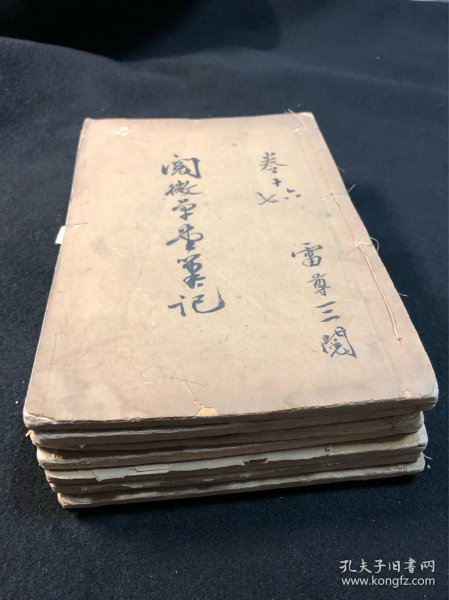 卷十六
七
雷尊三閱
阅微草堂筆记
孔夫子旧书网
www.kongfz.com